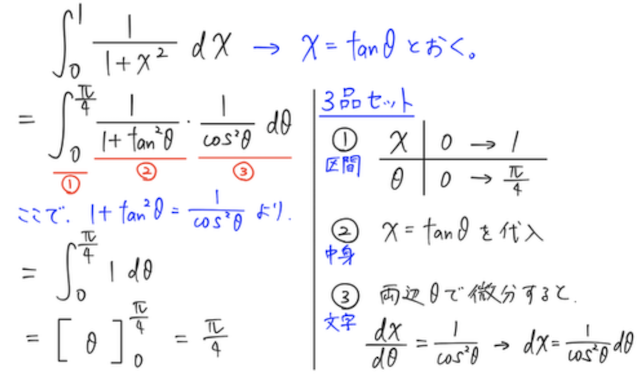 ∫₀¹ 1/(1+x²) dx → x = tanθ とおく。
= ∫₀^(π/4) 1/(1+tan²θ) · 1/cos²θ dθ
① ② ③
ここで、1+tan²θ = 1/cos²θ より、
= ∫₀^(π/4) 1 dθ
= [θ]₀^(π/4) = π/4
3品セット
① 区間
x | 0 → 1
θ | 0 → π/4
② x = tanθ を代入
中身
③ 両辺θで微分すると、
文字
dx/dθ = 1/cos²θ → dx = 1/cos²θ dθ